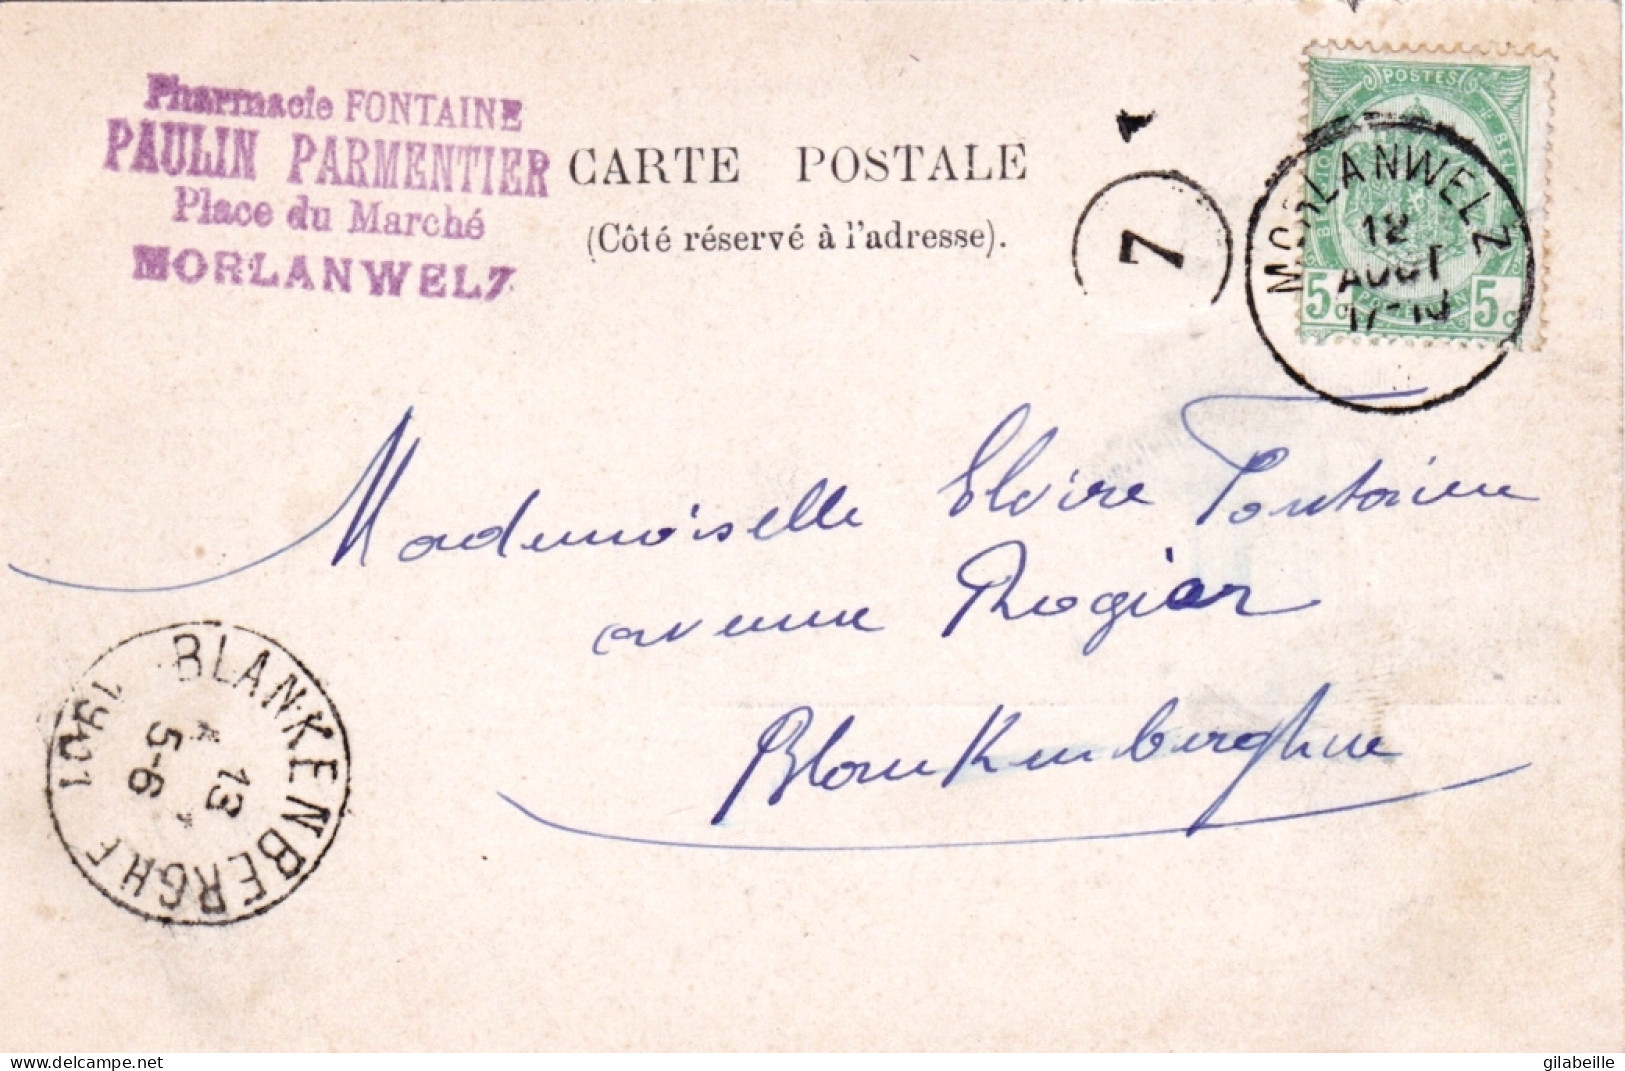 Pharmacie FONTAINE
PAULIN PARMENTIER
Place du Marché
MORLANWELZ
CARTE POSTALE
(Côté réservé à l'adresse).
7
POSTES
BELGIQUE
5c 5c
MORLANWELZ
12
AOUT
Mademoiselle Elvire Fontaine
avenue Rogier
Blankenberghe
BLANKENBERGHE
1901
13
5-6
gilabeille